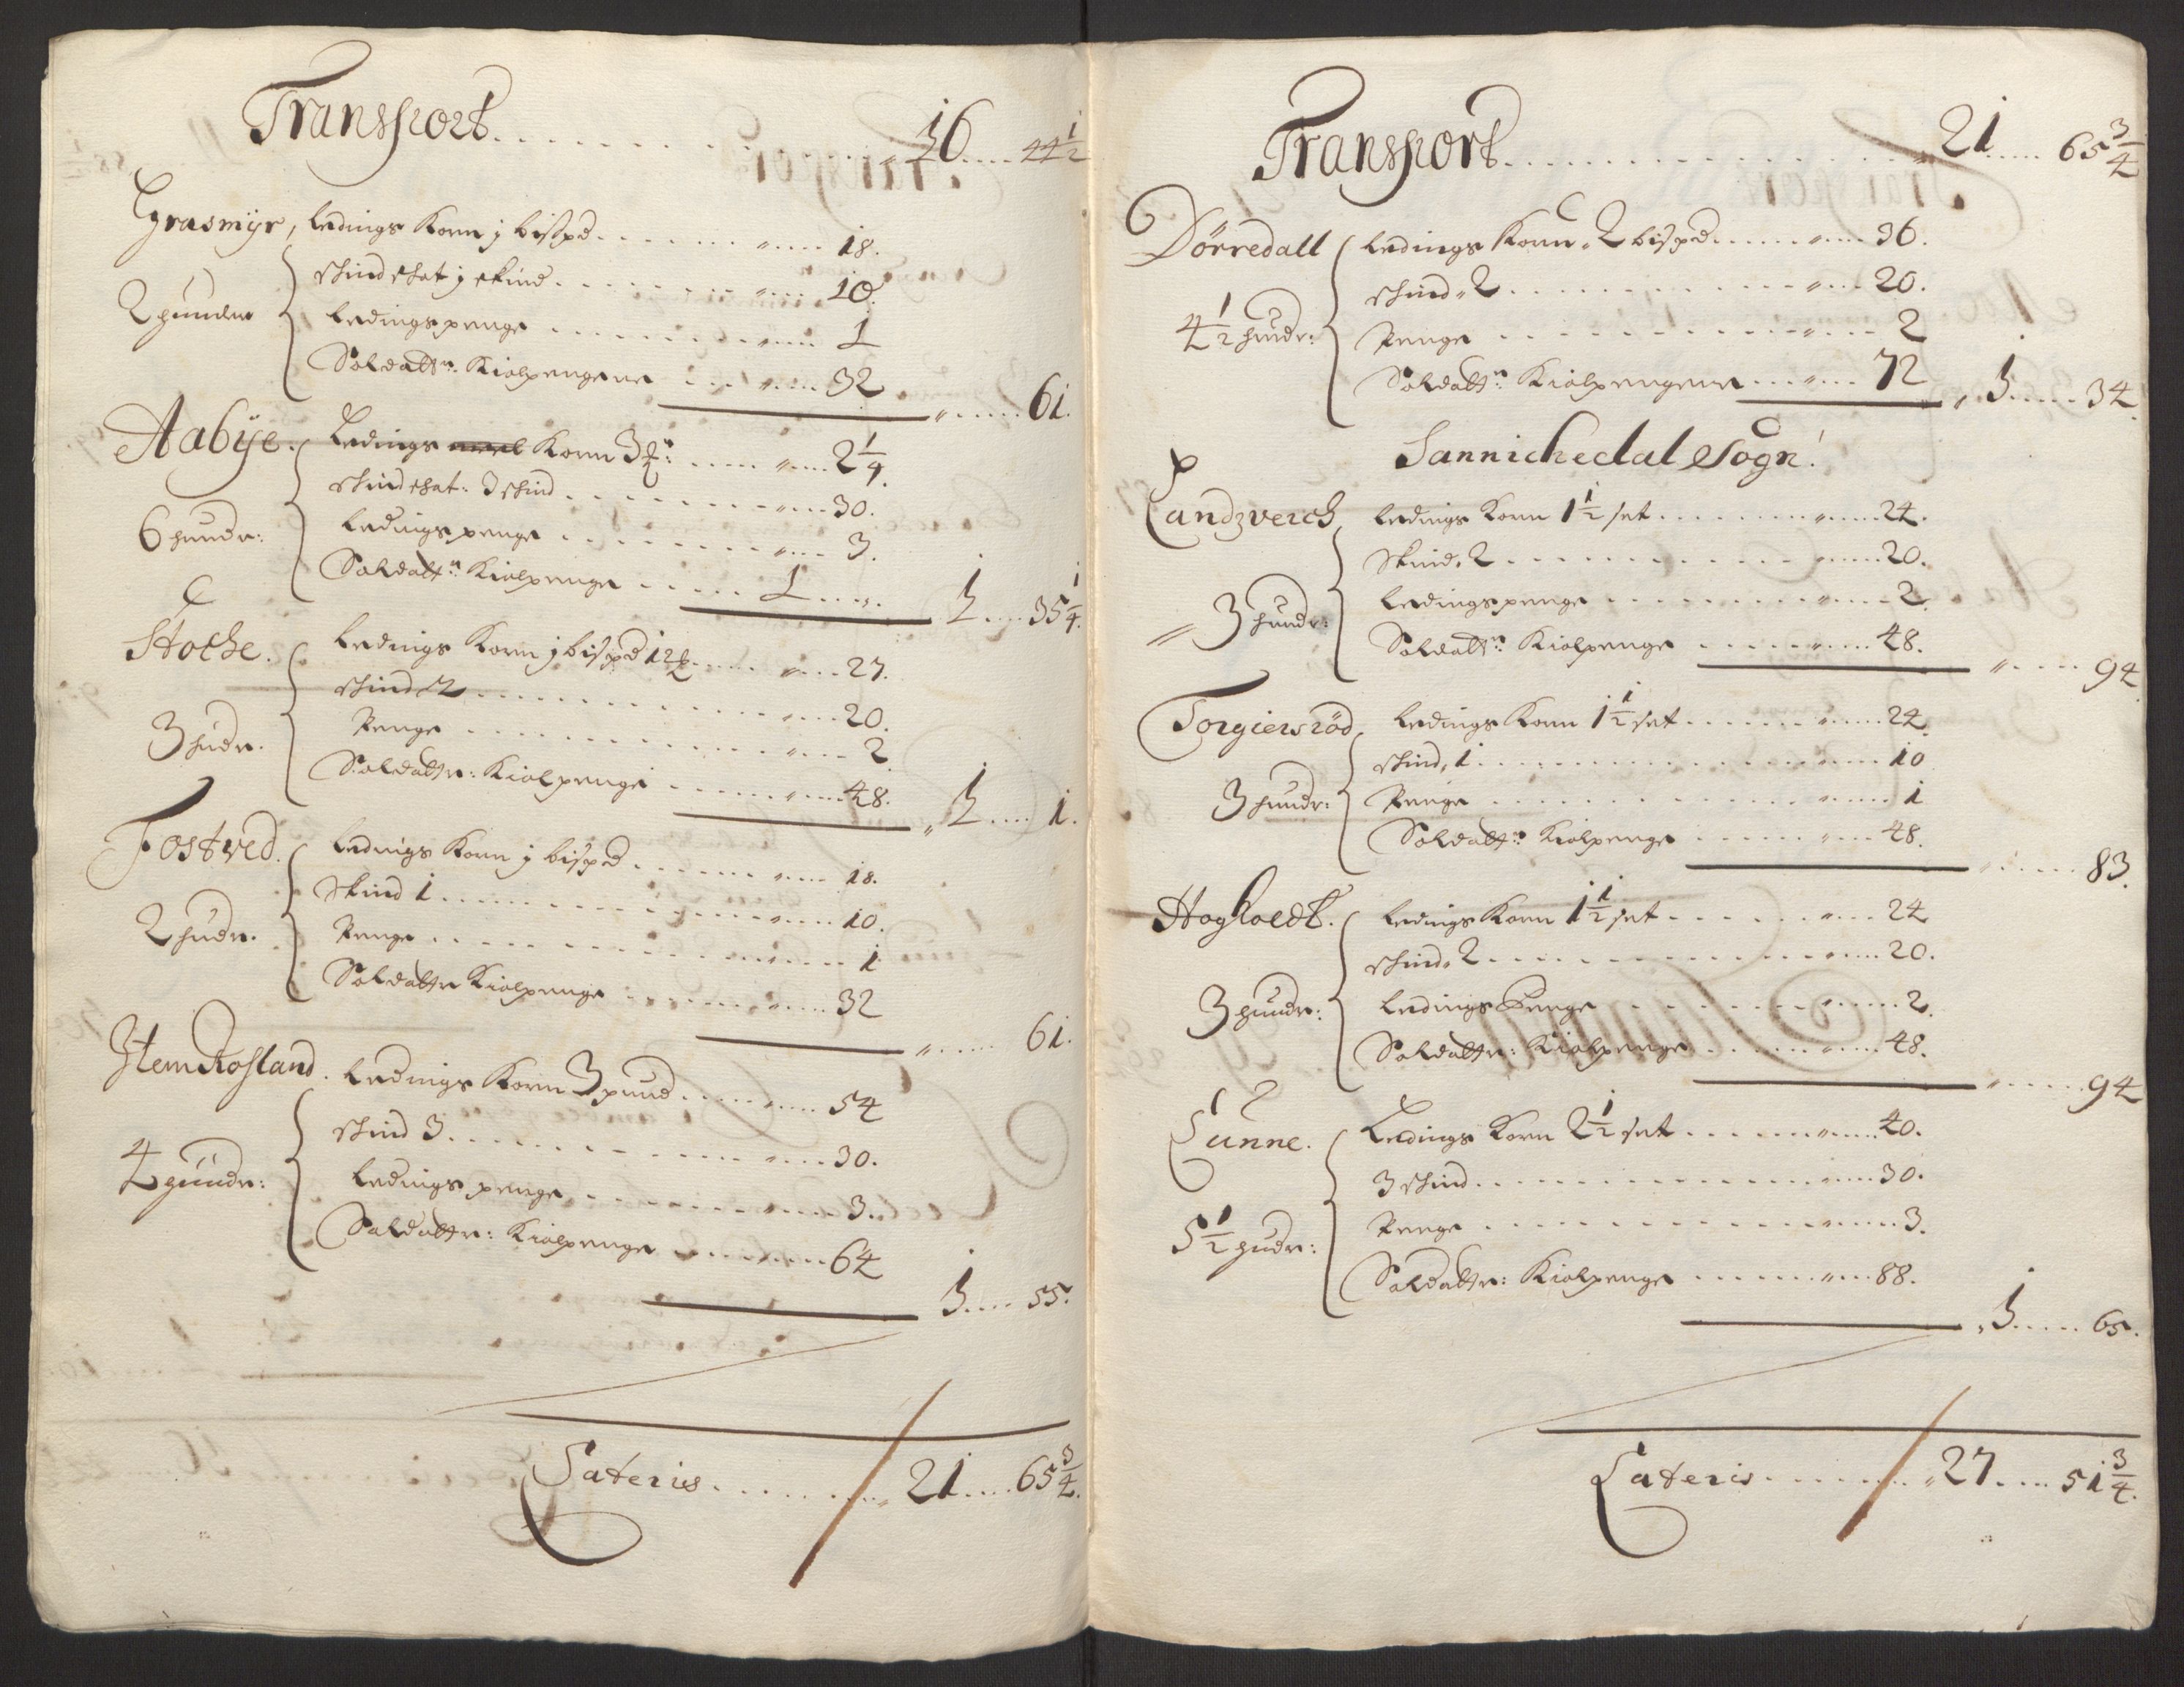 Transport . . . . . . 16 . . . . 44 1/2
Grasmyr, Ledings Korn j bispd . . . . 18.
2 hunder
skindskat j skind . . . . 10.
Ledingspenge . . . . 1
Soldattn: Kiolpengene . . . . 32
61.
Aabÿe. Ledings Korn 3 . . . . 2 1/4.
6 hundr:
skindskat: 3 skind . . . . 30.
Ledings penge . . . . 3.
Soldattn: Kiolpenge . . . . 1 . . . .
1 . . . . 35 1/4.
Stoche. Ledings Korn j bispd 12 . . . . 27.
3 hudr.
skind 2 . . . . 20.
Penge . . . . 2.
Soldattn: Kiolpenge . . . . 48.
1 . . . . 1.
Fostved. Ledings Korn j bispd . . . . 18.
2 hudr.
Skind 1 . . . . 10.
Penge . . . . 1
Soldattn Kiolpenge . . . . 32
61.
Item Rosland. Ledings Korn 3 pund . . . . 54
4 hundr:
skind 3 . . . . 30.
Ledings penge . . . . 3.
Soldattn: Kiolpenge . . . . 64
1 . . . . 55.
Lateris . . . . 21 . . . . 65 3/4.
Transport . . . . . . 21 . . . . 65 3/4
Dörredall Ledings Korn 2 bispd . . . . 36.
4 1/2 hundr:
skind 2 . . . . 20.
Penge . . . . 2
Soldattn: Kiolpengene . . . . 72
1 . . . . 34.
Sannichedal Sogn!
Landzverch Ledings Korn 1 1/2 set . . . . 24.
3 hundr:
Skind 2 . . . . 20.
Ledingspenge . . . . 2.
Soldattn: Kiolpenge . . . . 48.
94
Torgiersröd Ledings Korn 1 1/2 set . . . . 24
3 hundr:
skind, 1 . . . . 10
Penge . . . . 1
Soldattn: Kiolpenge . . . . 48.
83.
Hogholdt. Ledings Korn 1 1/2 set . . . . 24
3 hundr:
skind 2 . . . . 20.
Ledings Penge . . . . 2.
Soldattn: Kiolpenge . . . . 48.
94
Lunne. Ledings Korn 2 1/2 set . . . . 40.
5 1/2 hudr:
3 skind . . . . 30.
Penge . . . . 3.
Soldattn: Kiolpenge . . . . 88.
1 . . . . 65.
Lateris . . . . 27 . . . . 51 3/4.